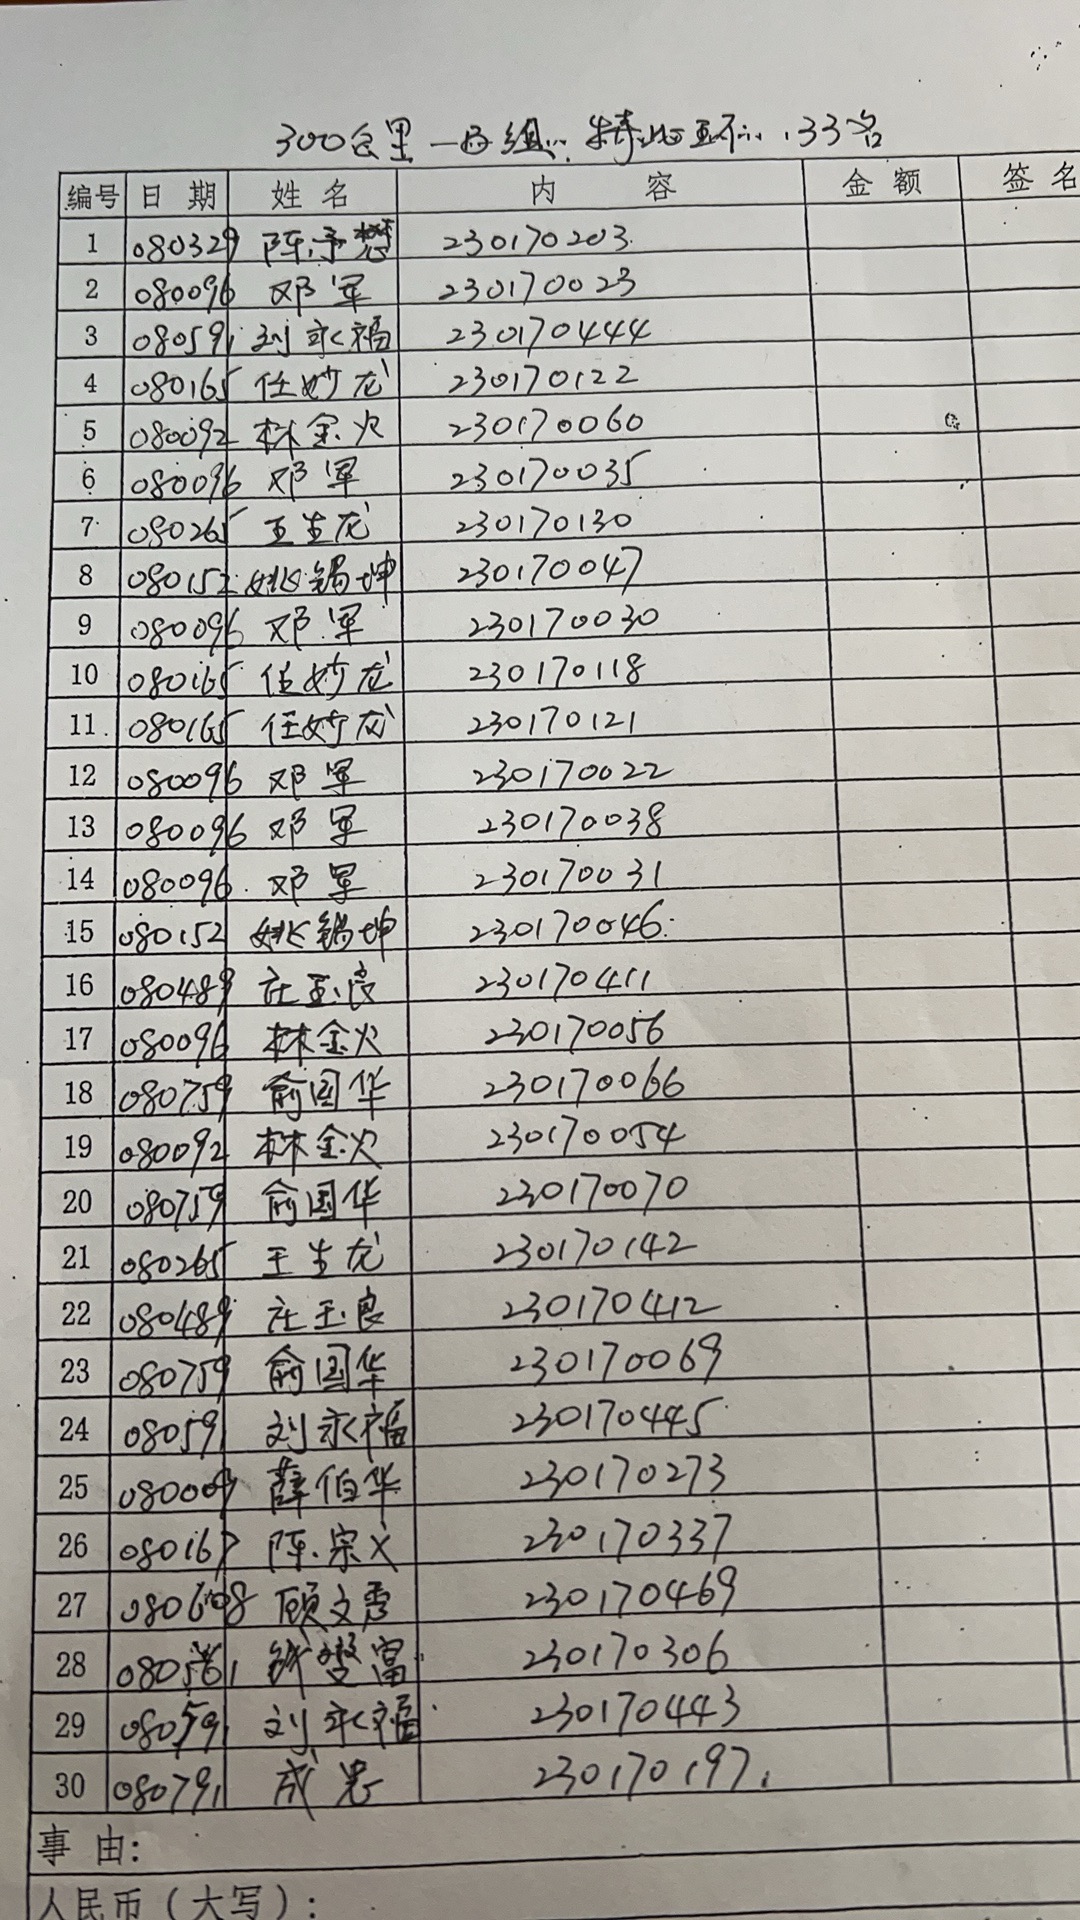 300公里一岁组 特比环 33名
编号 日期 姓名 内容 金额 签名
1 080329 陈予懋 230170203
2 080096 邓军 230170023
3 080591 刘永福 230170444
4 080165 任妙龙 230170122
5 080092 林金火 230170060
6 080096 邓军 230170035
7 080265 王生龙 230170130
8 080152 姚锡坤 230170047
9 080096 邓军 230170030
10 080165 任妙龙 230170118
11 080165 任妙龙 230170121
12 080096 邓军 230170022
13 080096 邓军 230170038
14 080096 邓军 230170031
15 080152 姚锡坤 230170046
16 080489 庄玉良 230170411
17 080096 林金火 230170056
18 080759 俞国华 230170066
19 080092 林金火 230170054
20 080759 俞国华 230170070
21 080265 王生龙 230170142
22 080489 庄玉良 230170412
23 080759 俞国华 230170069
24 080591 刘永福 230170445
25 080009 薛伯华 230170273
26 080167 陈宗义 230170337
27 080608 顾文 230170469
28 富 230170306
29 080591 刘永福 230170443
30 080791 成 230170197
事由:
人民币(大写):